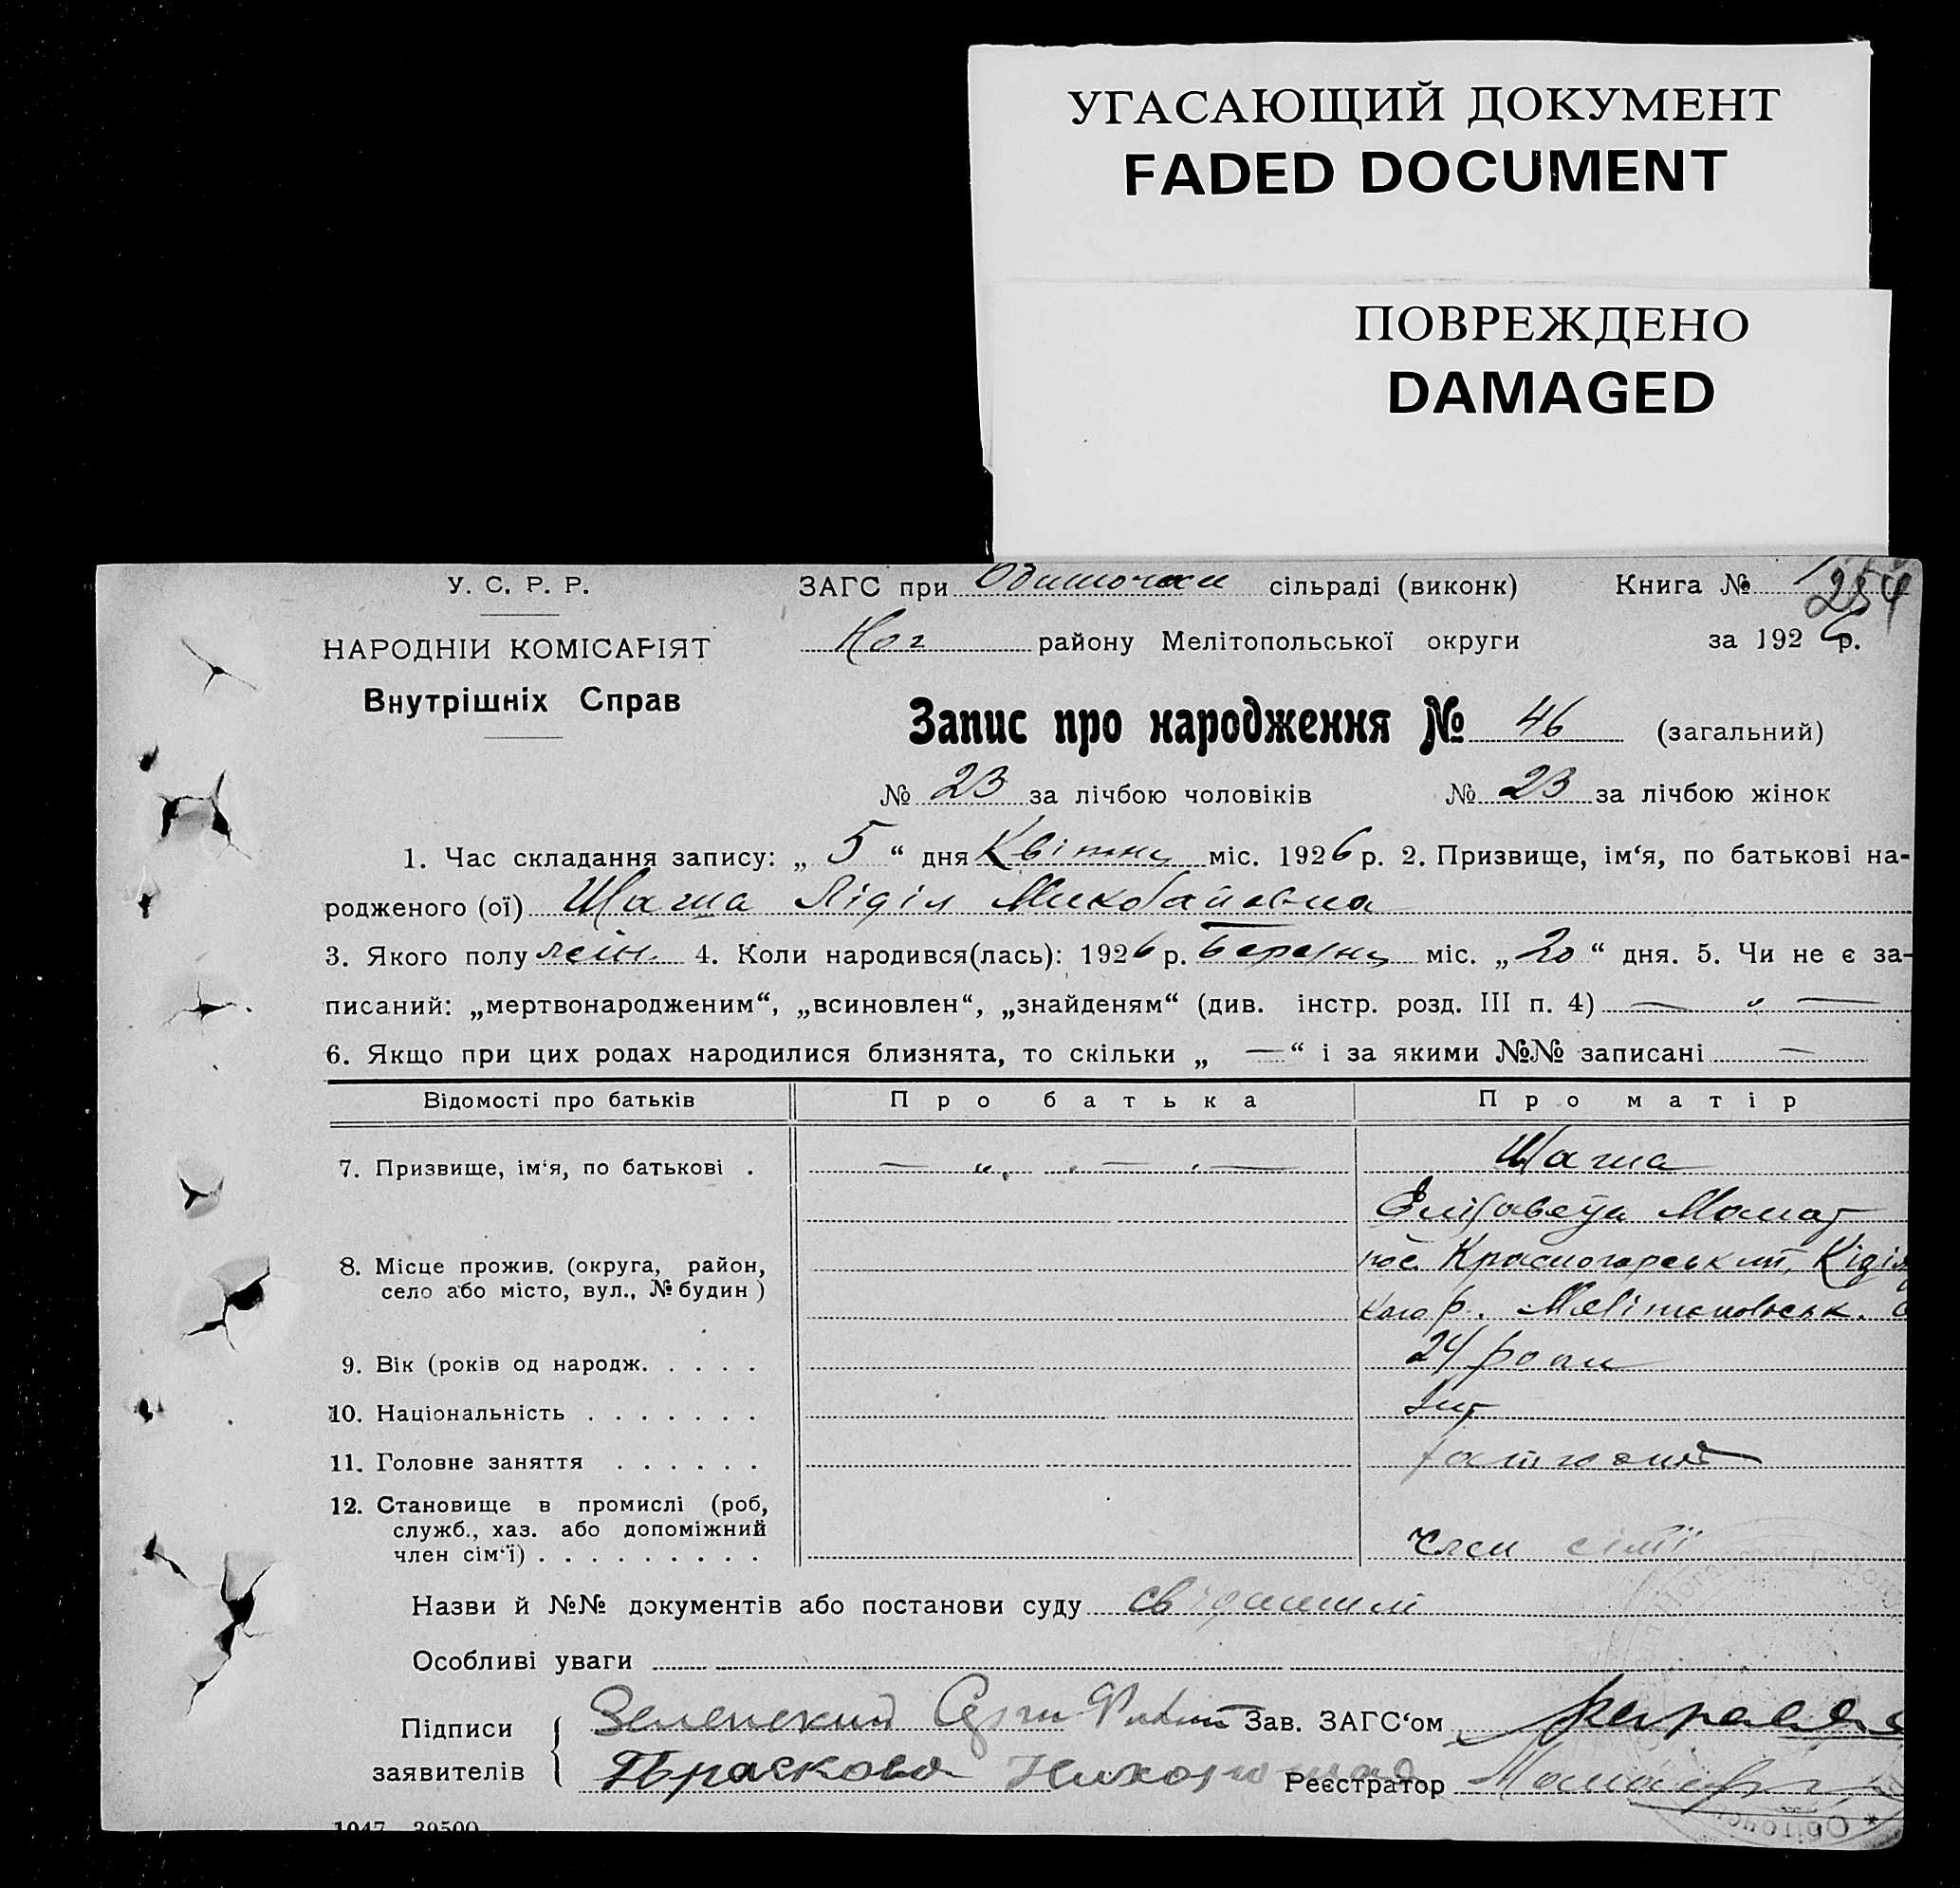 УГАСАЮЩИЙ ДОКУМЕНТ
FADED DOCUMENT
ПОВРЕЖДЕНО
DAMAGED
У. С. Р. Р. ЗАГС при сільраді (виконк) Книга № 254
НАРОДНІЙ КОМІСАРІЯТ Ног району Мелітопольської округи за 1926 р.
Внутрішніх Справ
Запис про народження № 46 (загальний)
№ 23 за лічбою чоловіків № 23 за лічбою жінок
1. Час складання запису: „ 5 “ дня Квітня міс. 1926 р. 2. Призвище, ім‘я, по батькові на-
родженого (ої) Лідія
3. Якого полу жін. 4. Коли народився(лась): 1926 р. Березня міс. „ 20 “ дня. 5. Чи не є за-
писаний: „мертвонародженим“, „всиновлен“, „знайденям“ (див. інстр. розд. III п. 4) — „ —
6. Якщо при цих родах народилися близнята, то скільки „ — “ і за якими №№ записані —
Відомості про батьків Про батька Про матір
7. Призвище, ім‘я, по батькові . — „ — . —
Елізавета
8. Місце прожив. (округа, район, пос. Красногорський,
село або місто, вул., № будин ) р.
9. Вік (років од народж. . . . . 24 роки
10. Національність . . . . . . .
11. Головне заняття . . . . . .
12. Становище в промислі (роб,
служб., хаз. або допоміжний
член сім‘ї) . . . . . . . . . Член сімї
Назви й №№ документів або постанови суду
Особливі уваги
Підписи Зеленский Зав. ЗАГС‘ом
заявителів Параскова Реєстратор
1047 39500